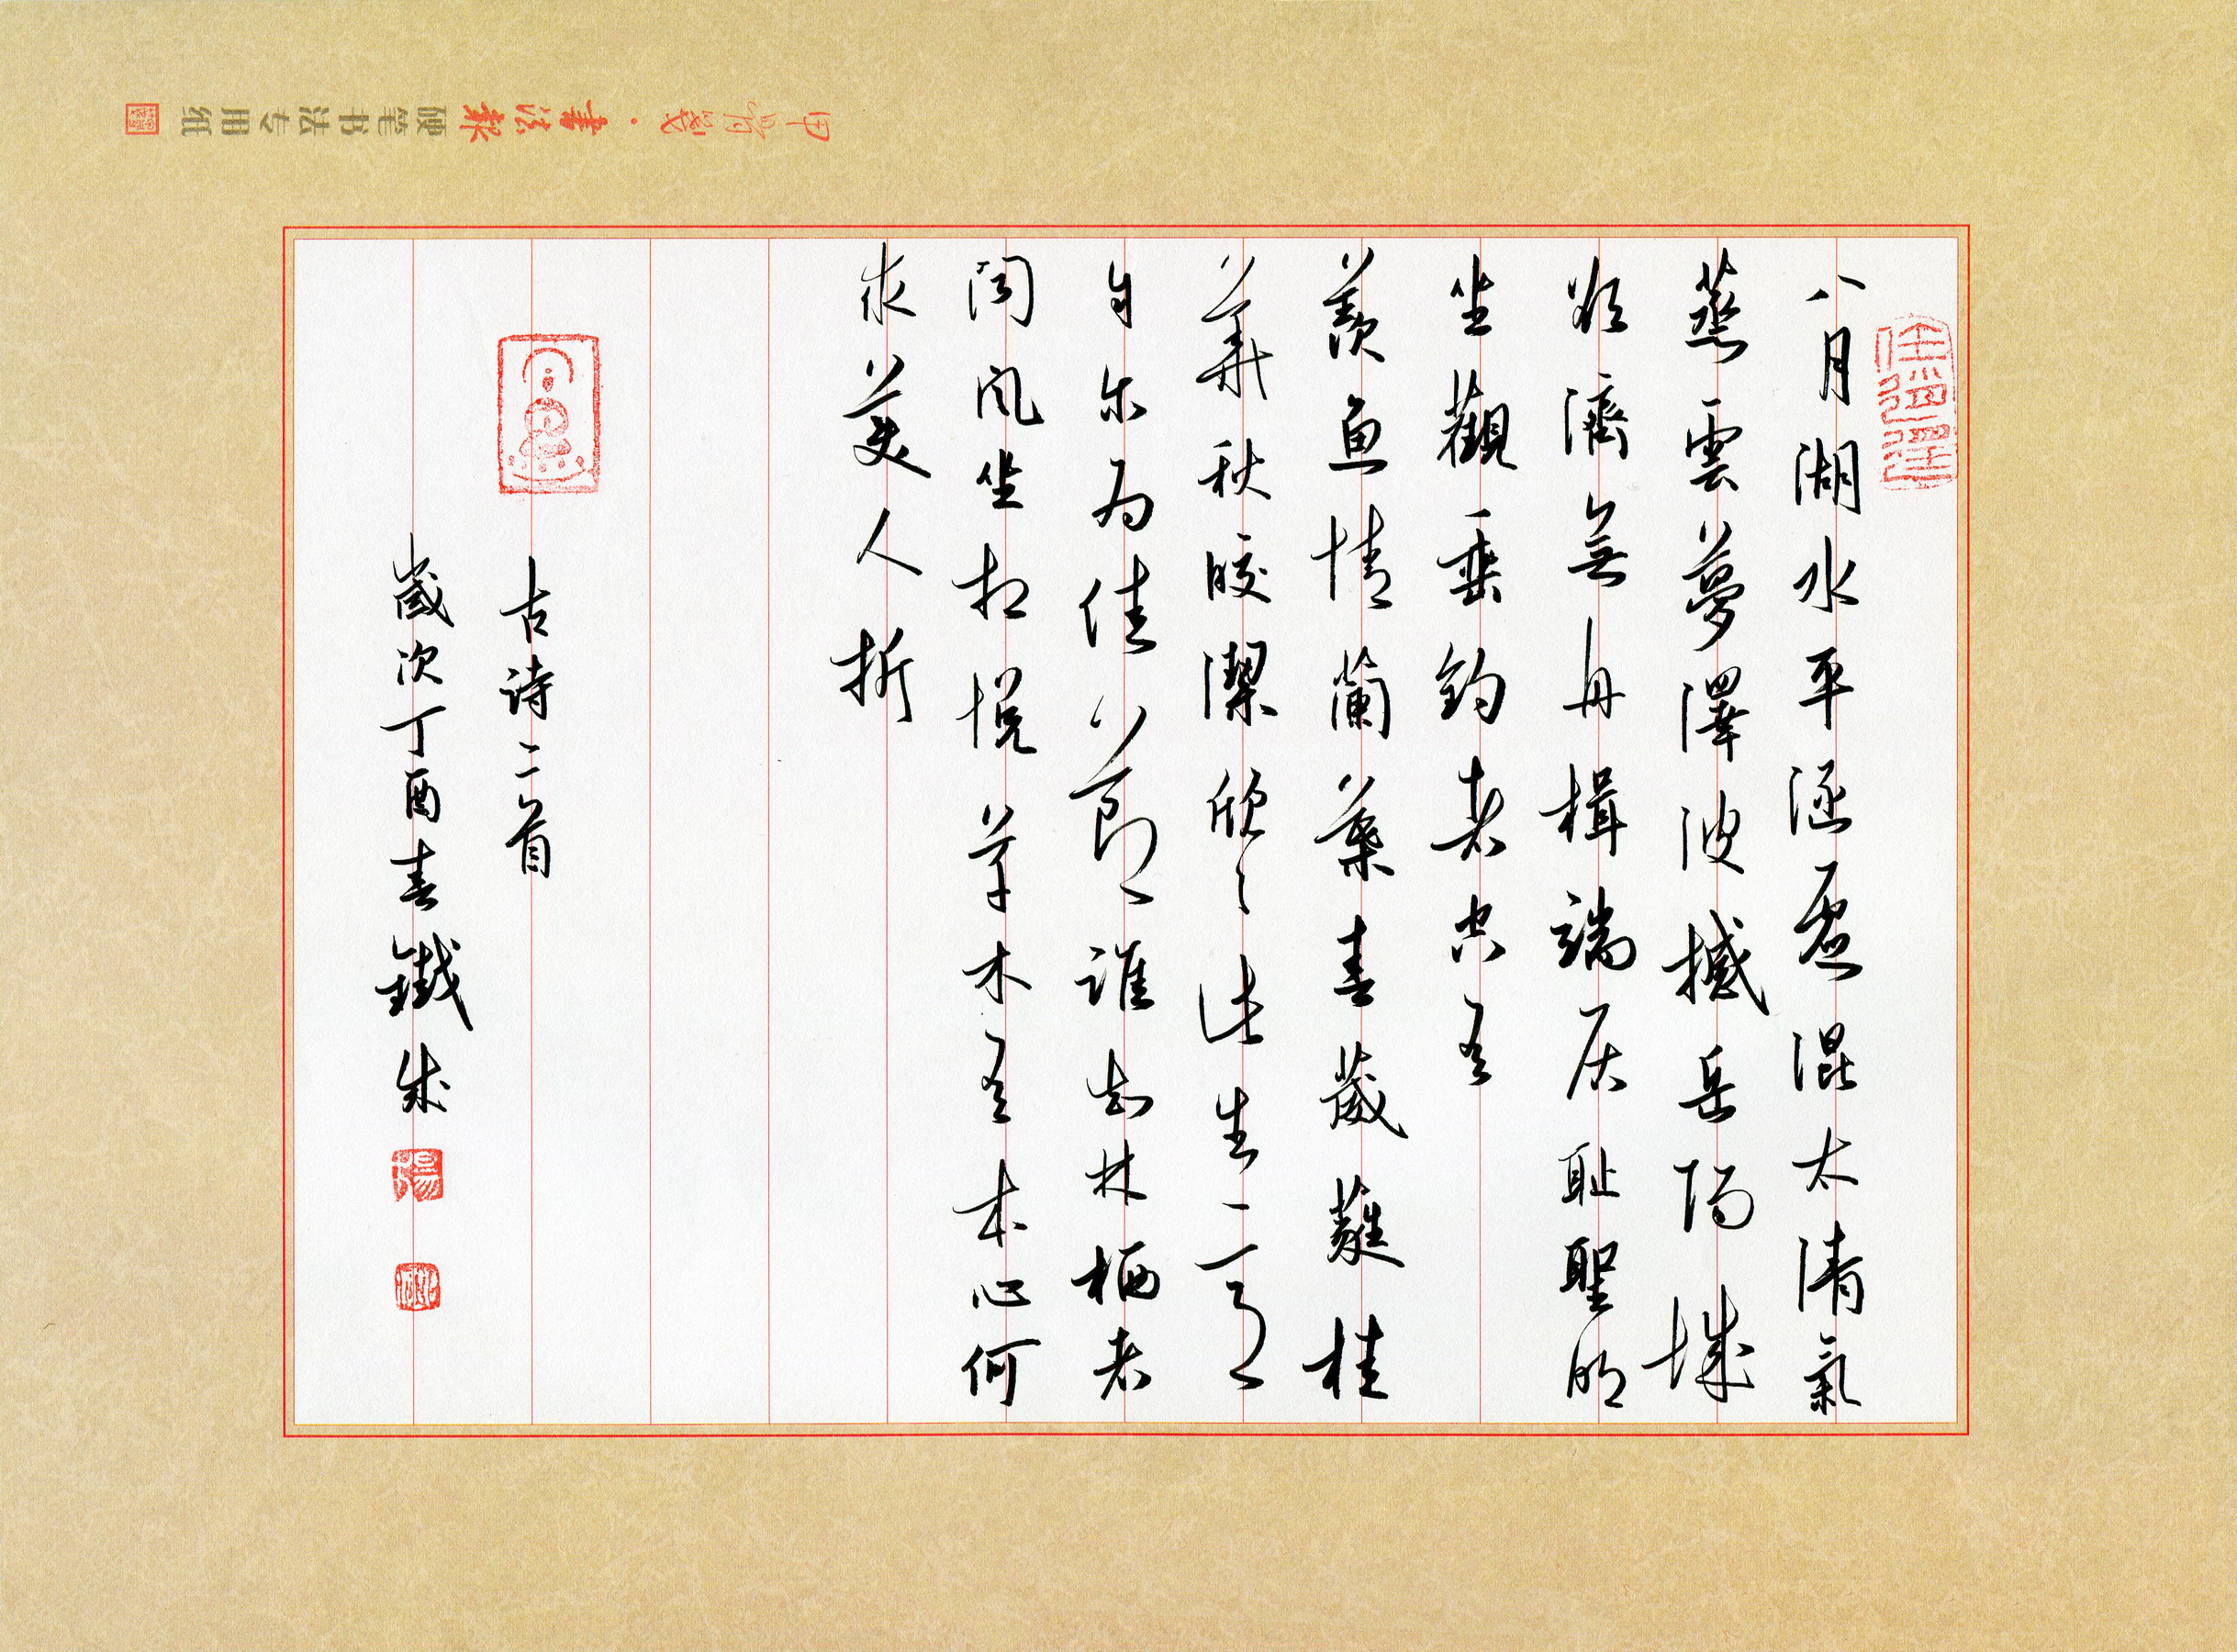 書法報 硬笔书法专用纸
八月湖水平涵虛混太清氣
蒸雲夢澤波撼岳陽城
欲濟無舟楫端居耻聖明
坐觀垂釣者空有
羨魚情蘭葉春葳蕤桂
華秋皎潔欣〻此生意
自尔為佳節誰知林栖者
聞風坐相悅草木有本心何
求美人折
古詩二首
歲次丁酉春鐵成